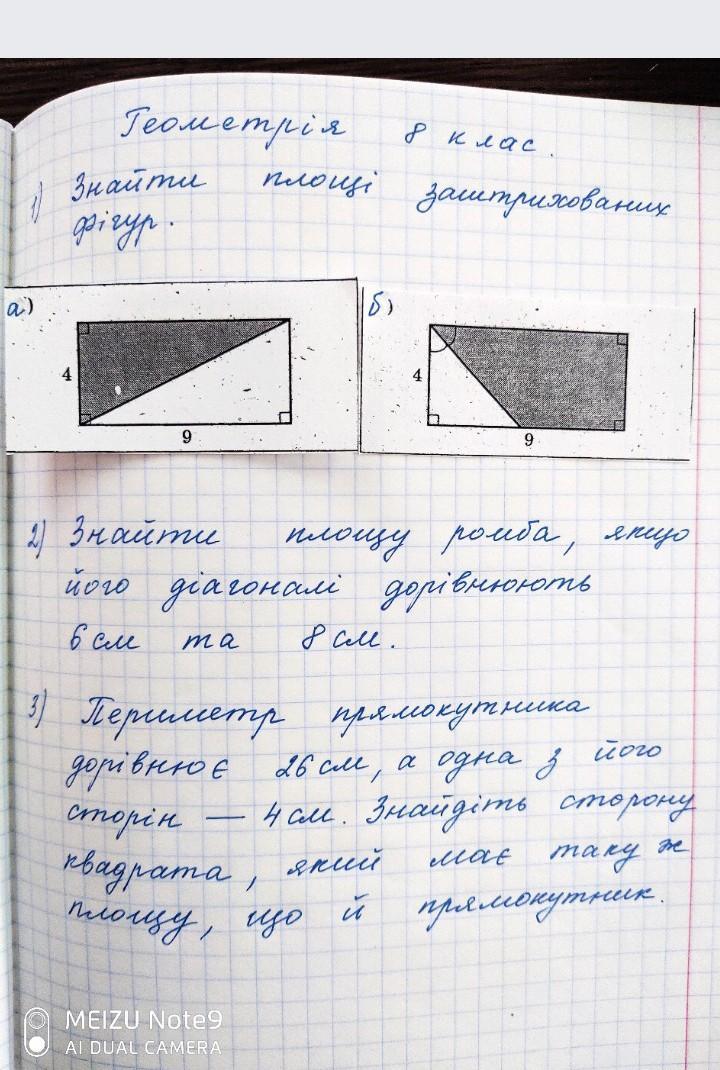 Геометрія 8 клас.
1) Знайти площі заштрихованих
фігур.
а)
4
9
б)
4
9
2) Знайти площу ромба, якщо
його діагоналі дорівнюють
6 см та 8 см.
3) Периметр прямокутника
дорівнює 26 см, а одна з його
сторін — 4 см. Знайдіть сторону
квадрата, який має таку ж
площу, що й прямокутник.
MEIZU Note9
AI DUAL CAMERA